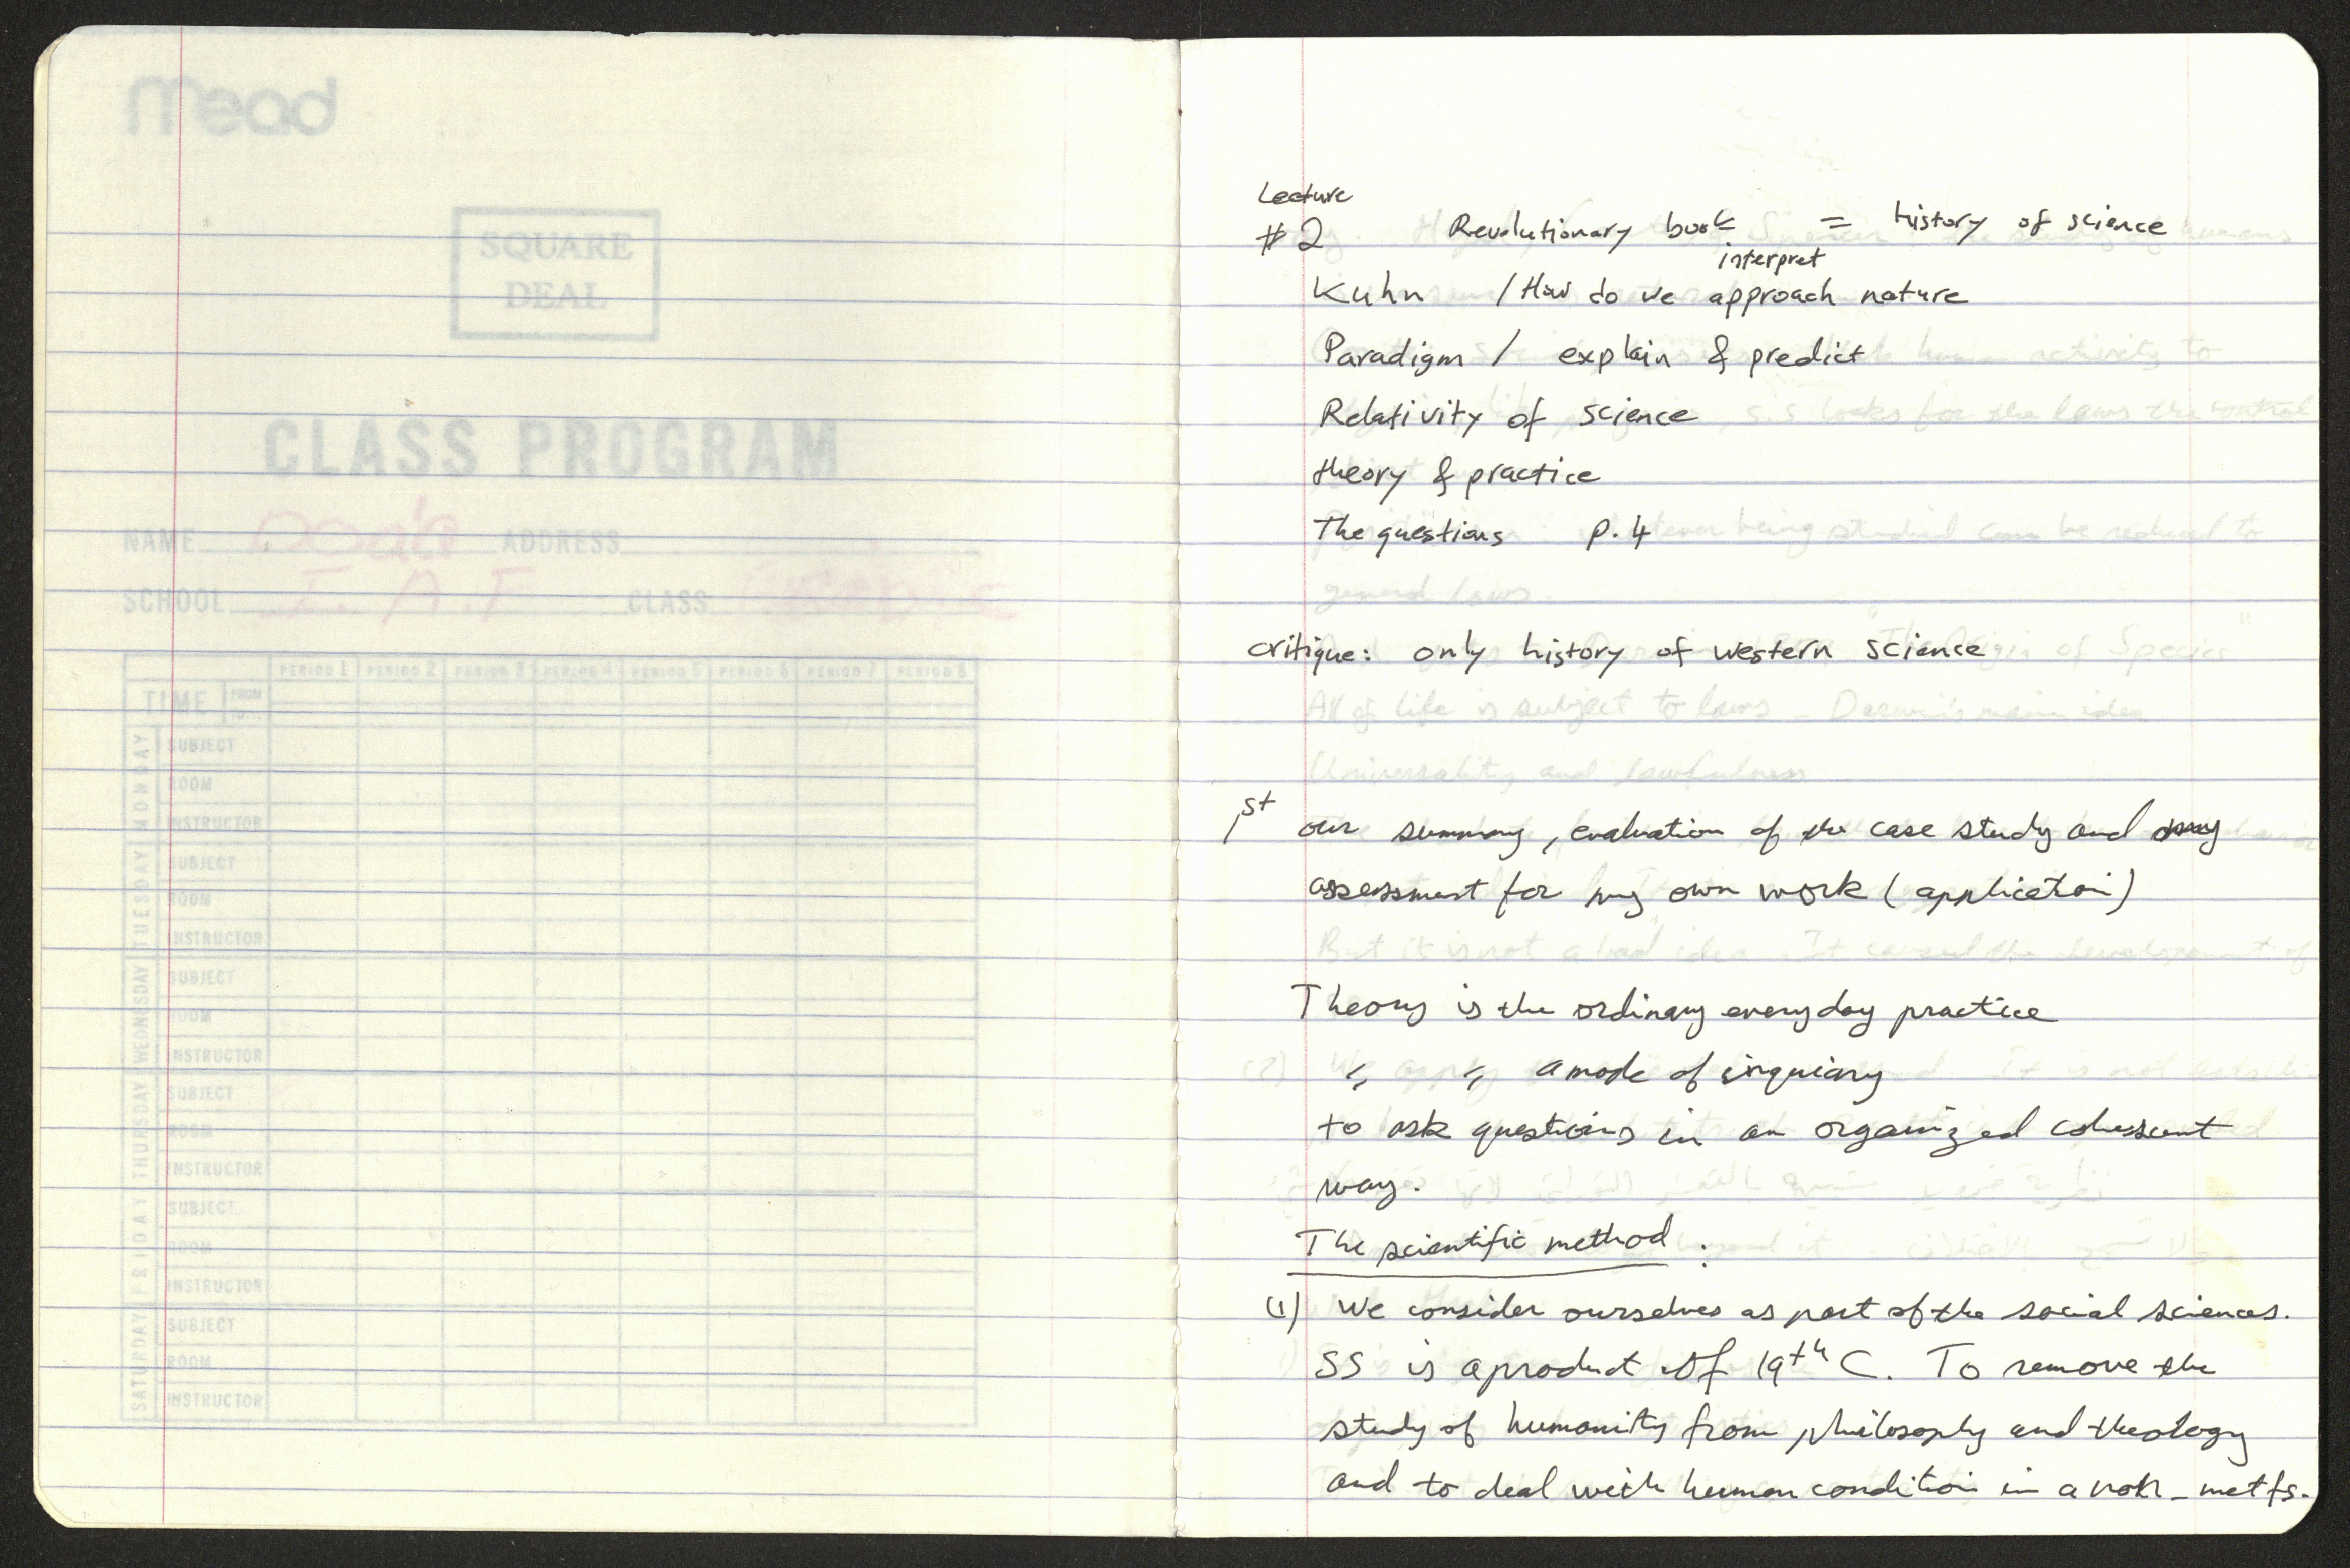 Mead
SQUARE
DEAL
CLASS PROGRAM
NAME ADDRESS
SCHOOL I.A.F CLASS
PERIOD 1 PERIOD 2 PERIOD 3 PERIOD 4 PERIOD 5 PERIOD 6 PERIOD 7 PERIOD 8
TIME FROM
TO
MONDAY
SUBJECT
ROOM
INSTRUCTOR
TUESDAY
SUBJECT
ROOM
INSTRUCTOR
WEDNESDAY
SUBJECT
ROOM
INSTRUCTOR
THURSDAY
SUBJECT
ROOM
INSTRUCTOR
FRIDAY
SUBJECT
ROOM
INSTRUCTOR
SATURDAY
SUBJECT
ROOM
INSTRUCTOR
Lecture
#2 Revolutionary book = history of science
interpret
Kuhn / How do we approach nature
Paradigm / explain & predict
Relativity of science
theory & practice
The questions P. 4
critique: only history of western science
1st our summary, evaluation of the case study and
assessment for my own work (application)
Theory is the ordinary everyday practice
" " a mode of inquiary
to ask questions in an organized cohesscent
way.
The scientific method :
(1) We consider ourselves as part of the social sciences.
SS is a product of 19th C. To remove the
study of humanity from philosophy and theology
and to deal with human condition in a non-metfs.